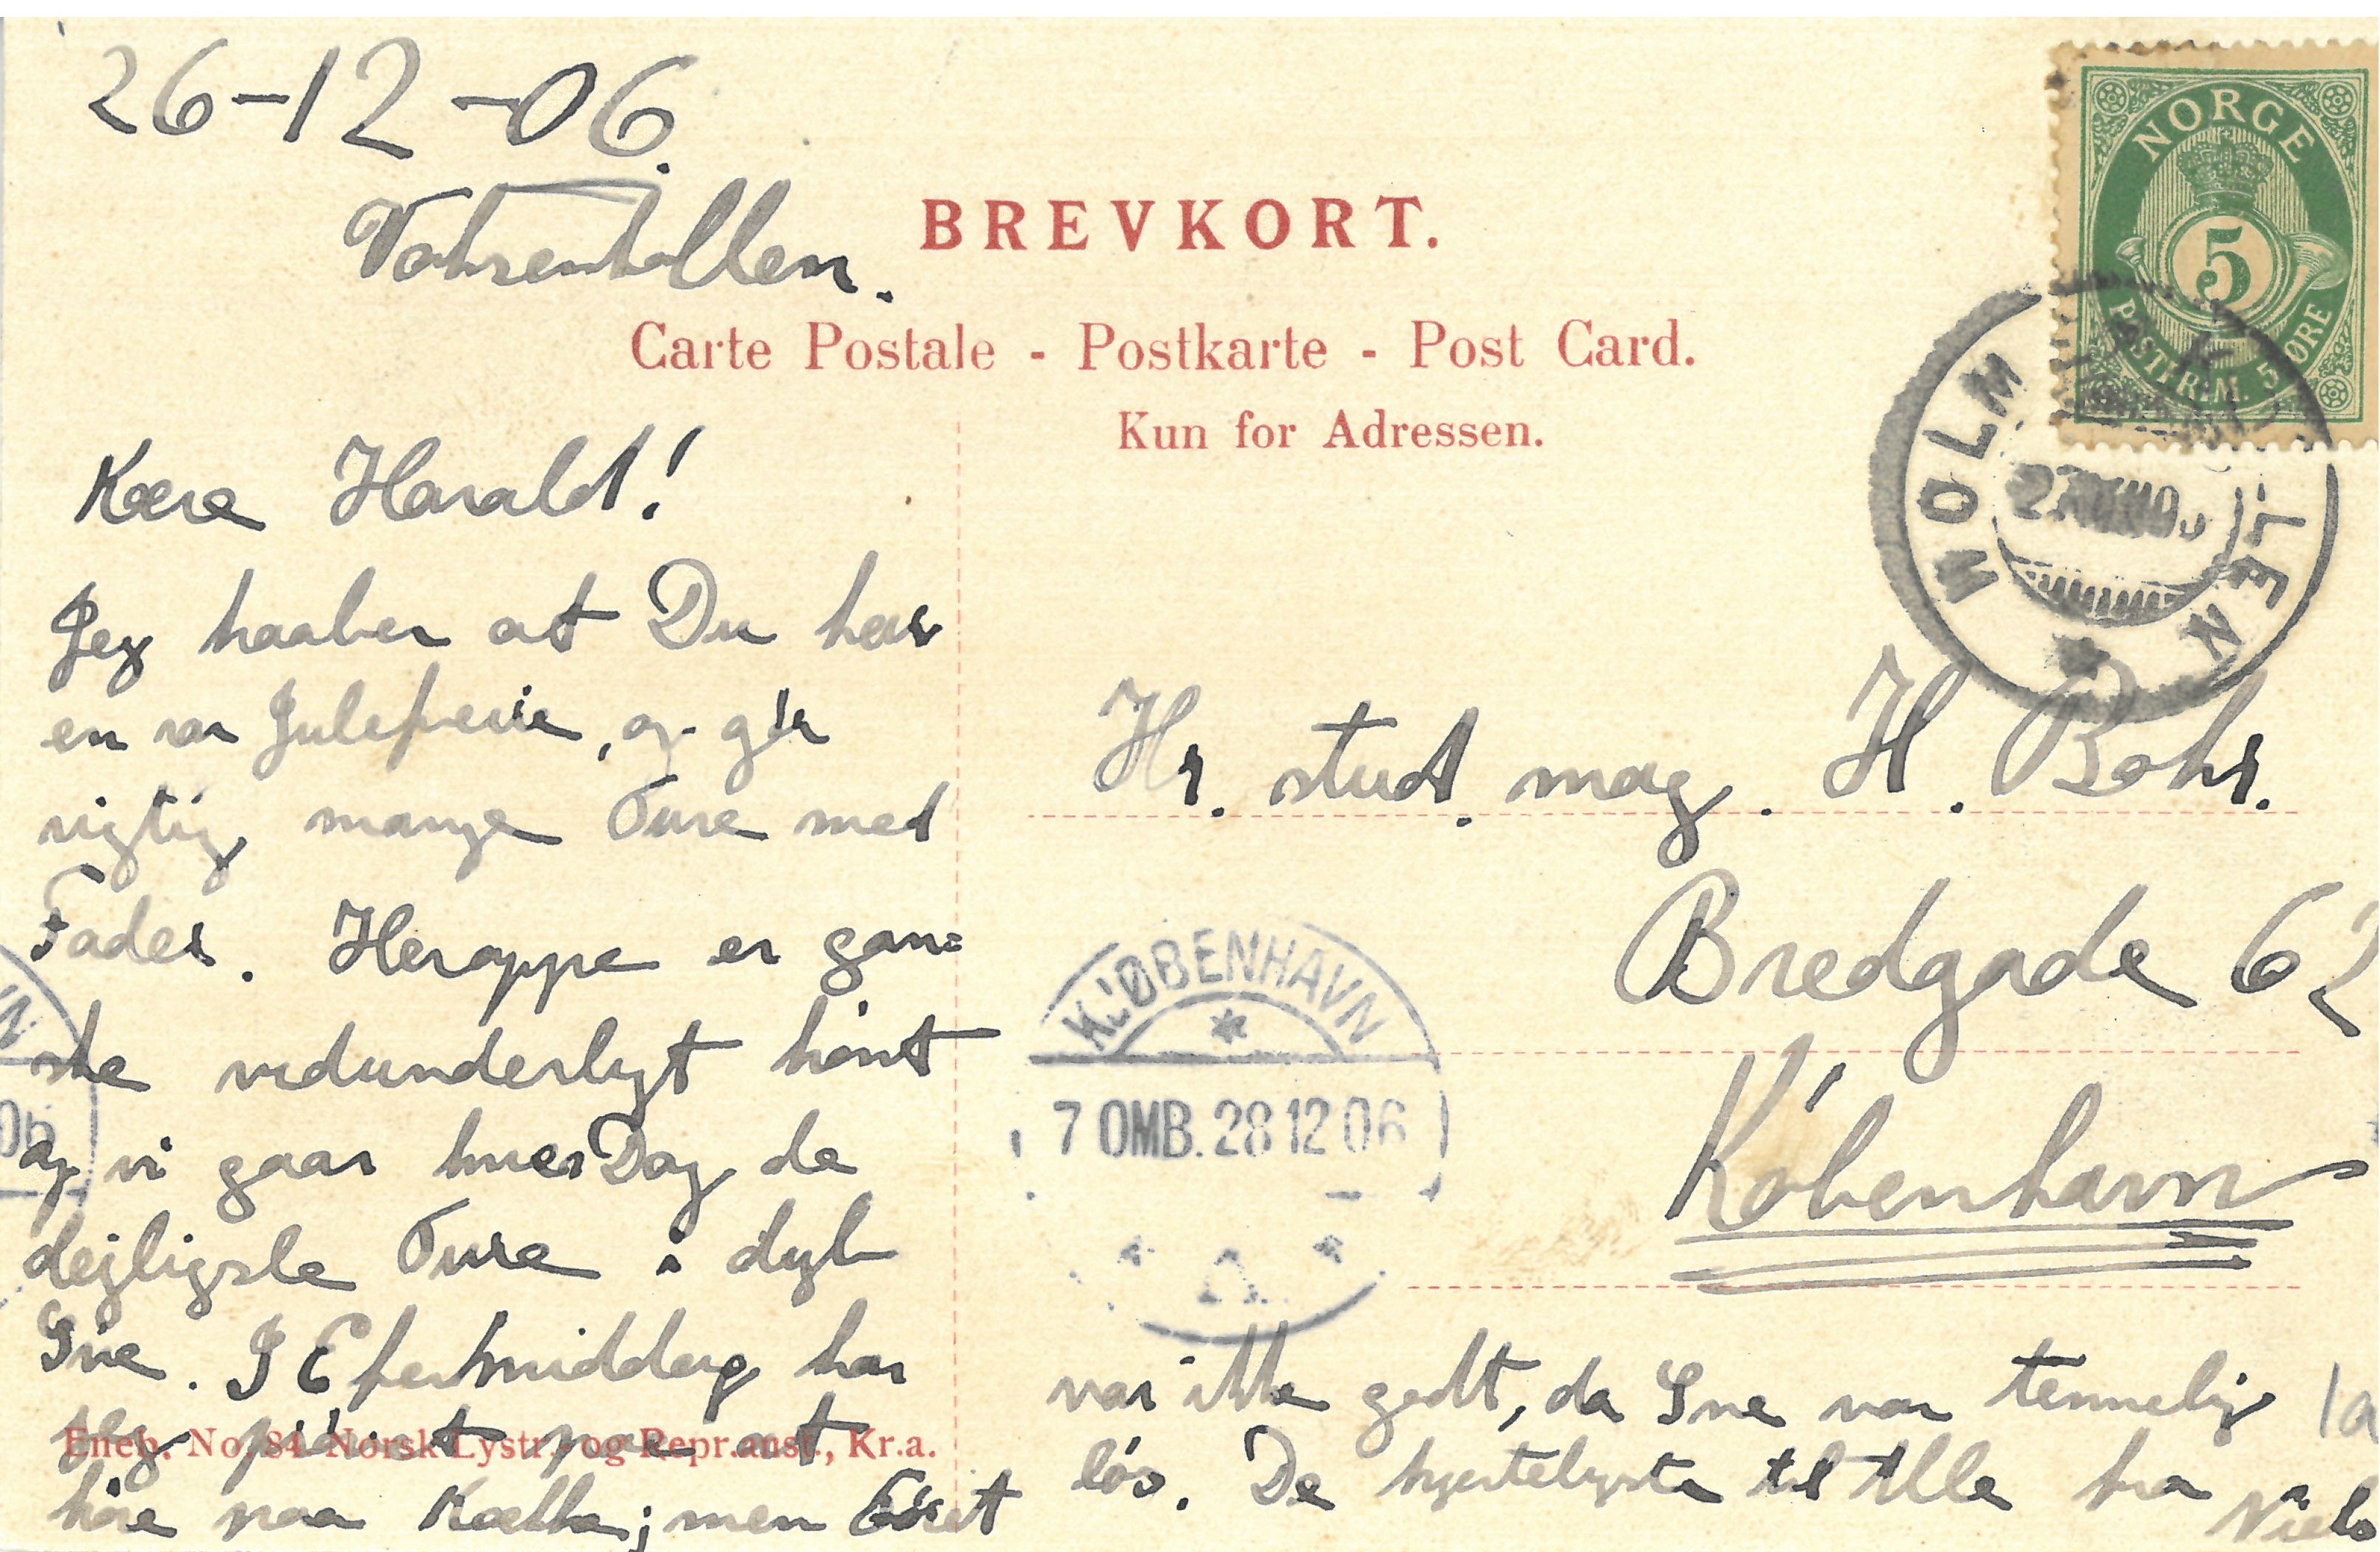 26-12-06.
Voksenkollen.
BREVKORT.
Carte Postale - Postkarte - Post Card.
Kun for Adressen.
NORGE
5
POSTFRIM. 5 ØRE
HOLMENKOLLEN
Kære Harald!
Jeg haaber at Du har
en rar Juleferie, og gør
rigtig mange Ture med
Fader. Heroppe er gan=
ske vidunderligt kønt
og vi gaar hver Dag de
dejligste Ture i dyb
Sne. I Eftermiddag har
jeg prøvet paa at
Eneb. No. 84 Norsk Lystr.- og Repr.anst., Kr.a.
køre paa Kælke; men Føret
var ikke godt, da Sne var temmelig
løs. De hjerteligste til Alle fra Niels
Hr. stud. mag. H. Bohr.
Bredgade 62
København
KJØBENHAVN
7 OMB. 28 12 06